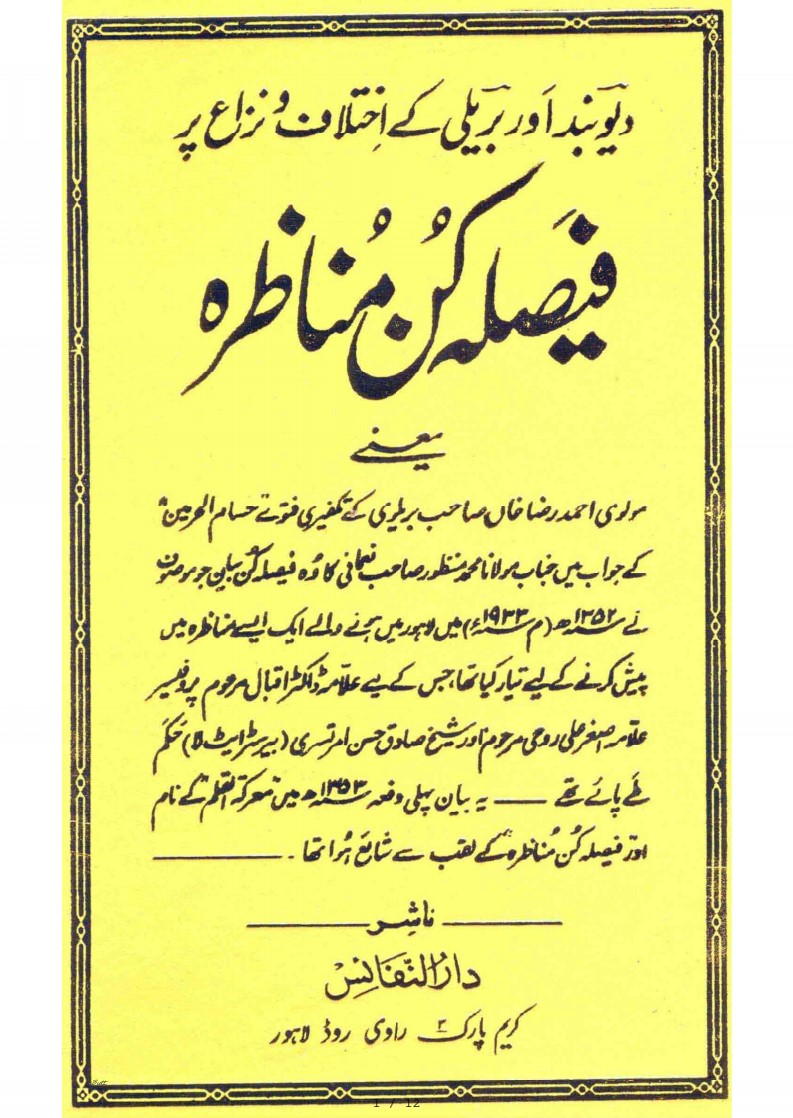 دیوبند اور بریلی کے اختلاف و نزاع پر
فیصلہ کُن مُناظرہ
یعنے
مولوی احمد رضا خاں صاحب بریلوی کے تکفیری فتوے حسام الحرمین"
کے جواب میں جناب مولانا محمد منظور صاحب نعمانی کا وُہ فیصلہ کُن بیان جو موصوف
نے ۱۳۵۲ھ (م ۱۹۳۳ء) میں لاہور میں ہونے والے ایک ایسے مناظرہ میں
پیش کرنے کے لیے تیار کیا تھا، جس کے لیے علامہ ڈاکٹر اقبال مرحوم پروفیسر
علامہ اصغر علی روحی مرحوم اور شیخ صادق حسن امرتسری (بیرسٹر ایٹ لا) حَکَم
طے پائے تھے —— یہ بیان پہلی دفعہ ۱۳۵۳ھ میں "معرکۃ القلم" کے نام
اور "فیصلہ کُن مُناظرہ" کے لقب سے شایع ہُوا تھا۔ ——
—— ناشِر ——
دارُالنّفائِس
کریم پارک ۲ راوی روڈ لاہور
1 / 12